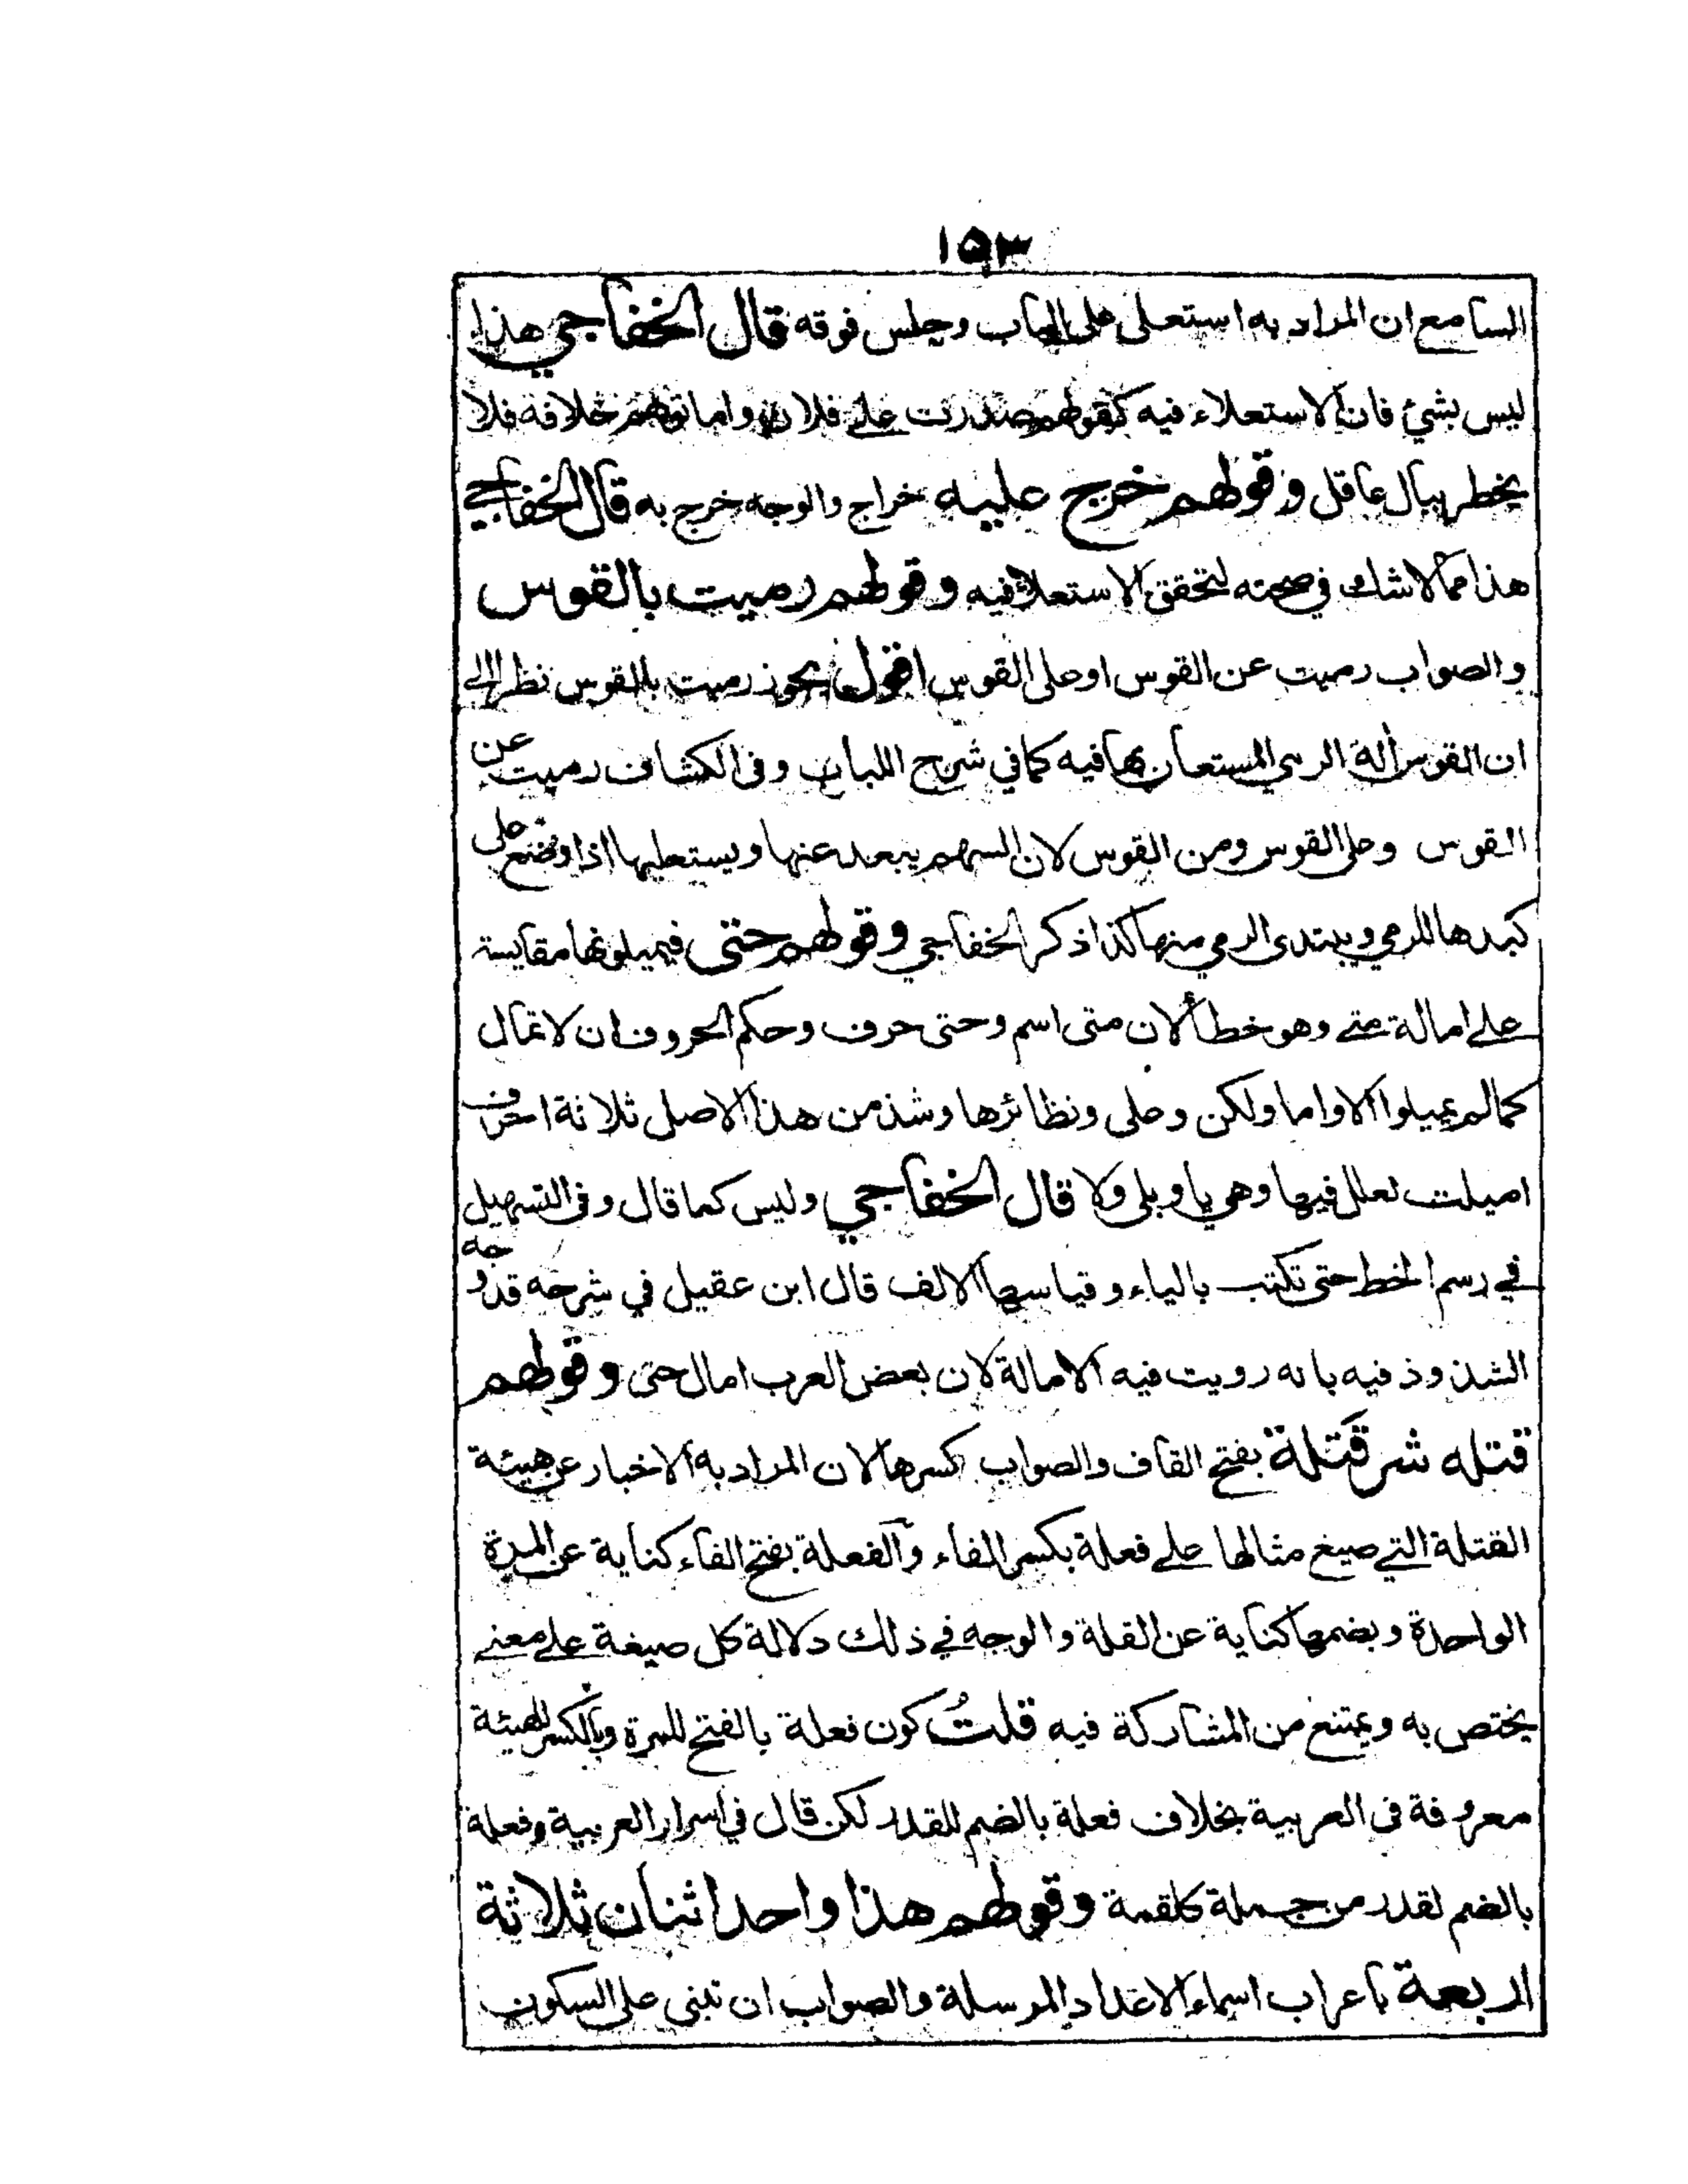 ١٥٣
السامع ان المراد به استعلى على الباب وجلس فوقه قال الخفاجي هذا
ليس بشئ فان الاستعلاء فيه كقولهم صدرت على فلان واما توهم خلافه فلا
يخطر ببال عاقل وقولهم خرج عليه خراج والوجه خرج به قال الخفاجي
هذا مما لا شك في صحته لتحقق الاستعلاء فيه وقولهم رميت بالقوس
والصواب رميت عن القوس او على القوس اقول يجوز رميت بالقوس نظرا الى
ان القوس ألة الرمي المستعان بها فيه كما في شرح اللباب وفي الكشاف رميت عن
القوس وعلى القوس ومن القوس لان السهم يبعد عنها ويستعليها اذا وضع على
كبدها للرمي ويبتدى الرمي منها كذا ذكر الخفاجي وقولهم حتى فيميلونها مقايسة
على امالة متى وهو خطأ لان متى اسم وحتى حرف وحكم الحروف ان لا تمال
كما لم يميلوا الا واما ولكن وعلى ونظائرها وشذ من هذا الاصل ثلاثة احرف
اميلت لعلل فيها وهي يا وبلى ولا قال الخفاجي وليس كما قال وفي التسهيل
في رسم الخط حتى تكتب بالياء وقياسها الالف قال ابن عقيل في شرحه قد وجه
الشذوذ فيه بانه رويت فيه الامالة لان بعض العرب امال حتى وقولهم
قتله شر قَتلة بفتح القاف والصواب كسرها لان المراد به الاخبار عن هيئة
القتلة التي صيغ مثالها على فعلة بكسر الفاء والفعلة بفتح الفاء كناية عن المرة
الواحدة وبضمها كناية عن القلة والوجه في ذلك دلالة كل صيغة على معنى
يختص به ويمتنع من المشاركة فيه قلتُ كون فعلة بالفتح للمرة وبالكسر للهيئة
معروفة في العربية بخلاف فعلة بالضم للقدر لكن قال في اسرار العربية وفعلة
بالضم لقدر من جملة كلقمة وقولهم هذا واحد اثنان ثلاثة
اربعة باعراب اسماء الاعداد المرسلة والصواب ان تبنى على السكون